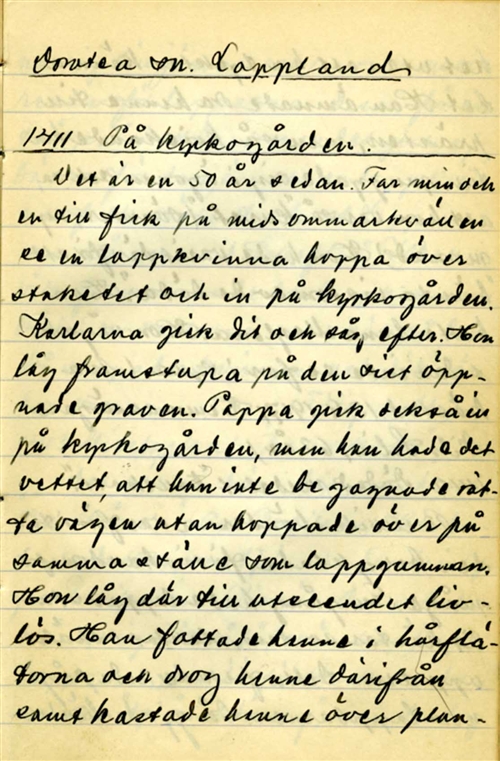 Dorotea sn. Lappland
1711 På kyrkogården.
Det är en 50 år sedan. Far min och
en till fick på midsommarkvällen
se en lappkvinna hoppa över
staketet och in på kyrkogården.
Karlarna gick dit och såg efter. Hon
låg framstupa på den sist öpp-
nade graven. Pappa gick också in
på kyrkogården, men han hade det
vettet, att han inte begagnade rät-
ta vägen utan hoppade över på
samma ställe som lappgumman.
Hon låg där till utseendet liv-
lös. Han fattade henne i hårflä-
torna och drog henne därifrån
samt kastade henne över plan-